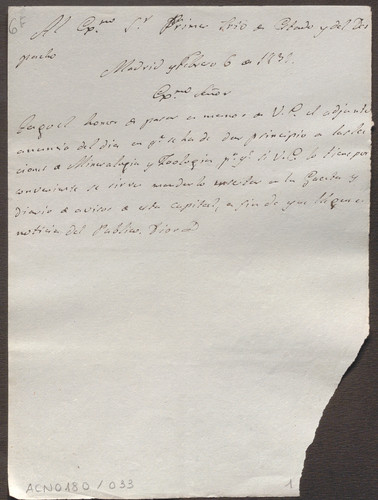 Al Exmo. Sr. Primer Srio de Estado y del Des
pacho
Madrid y Febrero 6 de 1831.
Exmo Señor
Tengo el honor de pasar a manos de V.E. el adjunto
anuncio del dia en qe. se ha de dar principio a las lec
ciones de Mineralogia y Zoologia pa. qe. si V.E. lo tiene por
conveniente se sirva mandarlo insertar en la Gaceta y
Diario de avisos de esta capital, a fin de que llegue a
noticia del Publico. Dios &
ACN0180/033
1